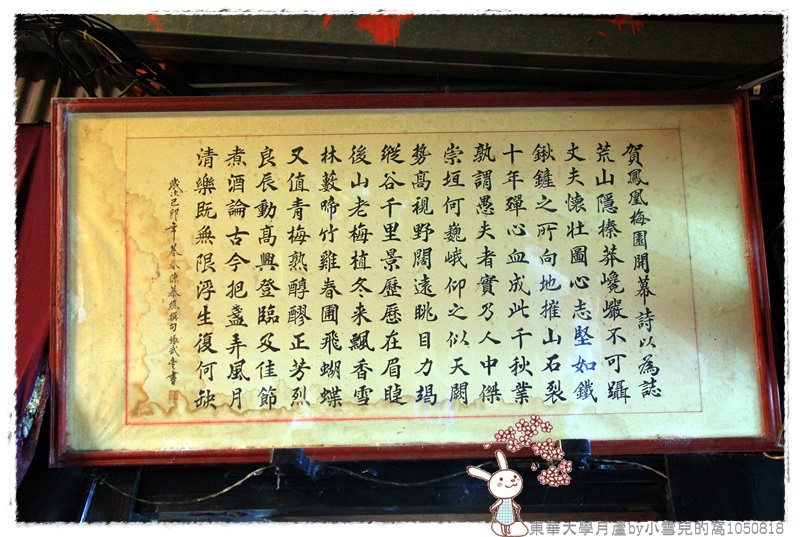 賀鳳凰梅園開幕詩以為誌
荒山隱榛莽巉巖不可躡
丈夫懷壯圖心志堅如鐵
鍬鏟之所向地摧山石裂
十年殫心血成此千秋業
孰謂愚夫者實乃人中傑
崇垣何巍峨仰之似天闕
勢高視野闊遠眺目力竭
縱谷千里景歷歷在眉睫
後山老梅植冬來飄香雪
林藪啼竹雞春圃飛蝴蝶
又值青梅熟醇醪正芳烈
良辰動高興登臨及佳節
煮酒論古今把盞弄風月
清樂既無限浮生復何缺
歲次己卯年暮春陳 撰句張武 書
東華大學月蘆by小雪兒的窩1050818